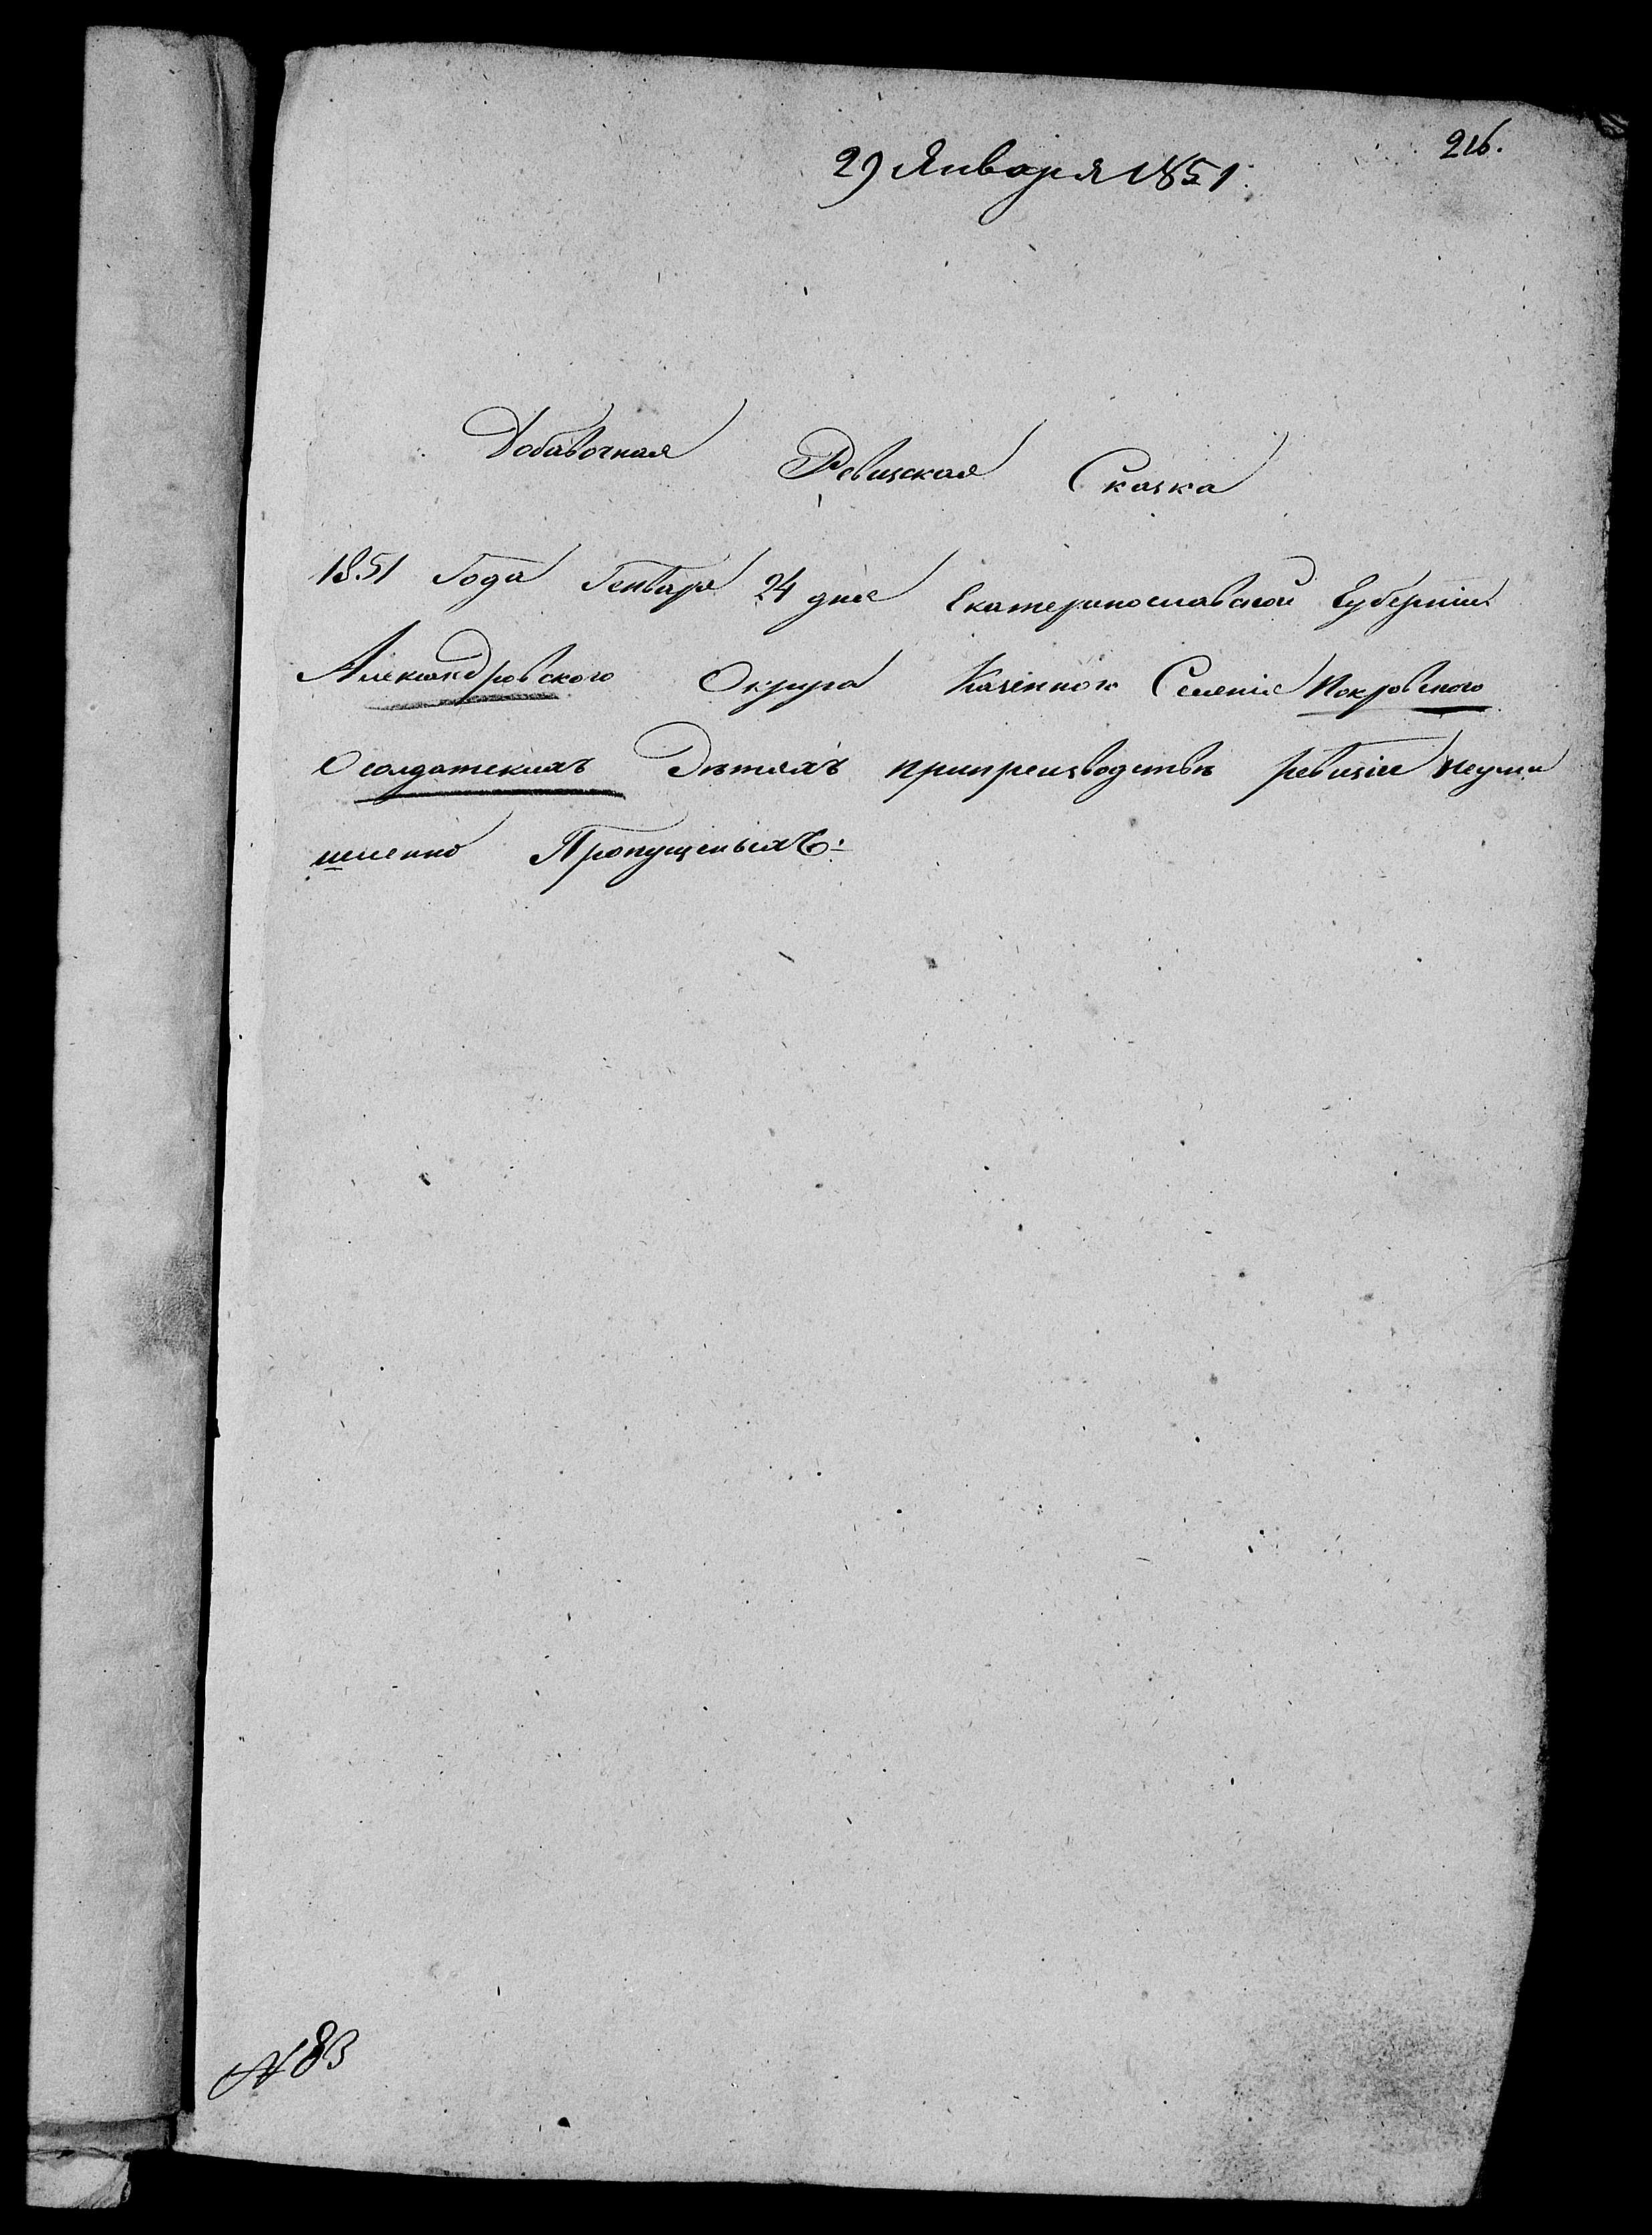 216.
29 Января 1851.
Добавочная Ревизская Сказка
1851 Года Генваря 24 дня Екатеринославской Губернiи
Александровского Округа Казенного Селенiя Покровского
О солдатскихъ Дѣтяхъ припреизводствѣ ревизiи Неумы
шленно Пропущеныхъ:
№ 83